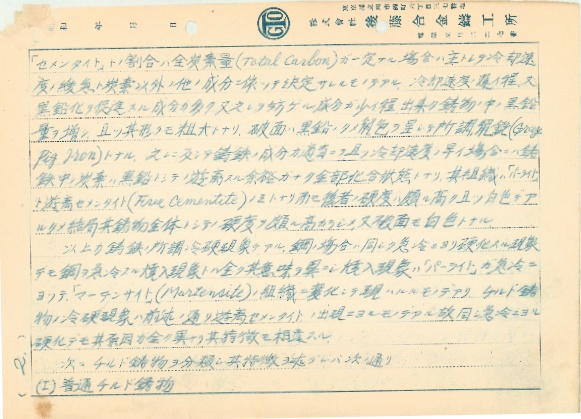 和 年 月 日
GTO
株式會社 後藤合金鑄工所
「セメンタイト」トノ割合ハ全炭素量(Total Carbon)ガ一定ナル場合ハ主トシテ冷却速
度ノ緩急ト炭素以外ノ他ノ成分ニ依ッテ決定サレルモノデアル、冷却速度遅イ程、又
黒鉛化ヲ促進スル成分ガ多ク又之レヲ妨ゲル成分ガ少イ程出来タ鋳物中ノ黒鉛
量ヲ増シ、且ツ其形ヲモ粗大トナリ、破面ハ黒鉛ノタメ鼠色ヲ呈シテ所謂鼠銑(Gray
Pig Iron)トナル、之レニ反シテ鋳鉄ノ成分ガ適當ニテ且ツ冷却速度ノ早イ場合ニハ鋳
鉄中ノ炭素ハ黒鉛トシテ遊離スル余裕ガナク全部化合状態トナリ、其組織ハ「パーライト」
ト遊離セメンタイト(Free Cementite)ノミトナリ而モ後者ノ硬度ハ頗ル高ク且ツ白色デア
ルタメ結局其鋳物全体トシテノ硬度ヲ頗ル高カラシメ又破面モ白色トナル
以上ガ鋳鉄ノ所謂冷硬現象デアル、鋼ノ場合ハ同ジク急冷ニヨリ硬化スル現象
デモ鋼ヲ急冷スル焼入現象トハ全ク其意味ヲ異ニシ焼入現象ハ「パーライト」ガ急冷ニ
ヨッテ「マーテンサイト」(Martensite)ノ組織ニ変化シテ現ハレルモノデアリ チルド鋳
物ノ冷硬現象ハ前述ノ通リ遊離セメンタイトノ出現ニヨルモノデアル故同ジ急冷ニヨル
硬化デモ其原因ガ全ク異リ其特徴モ相違スル
次ニチルド鋳物ヲ分類シ其特徴ヲ述ブレバ次ノ通リ
(I) 普通チルド鋳物
(2.)